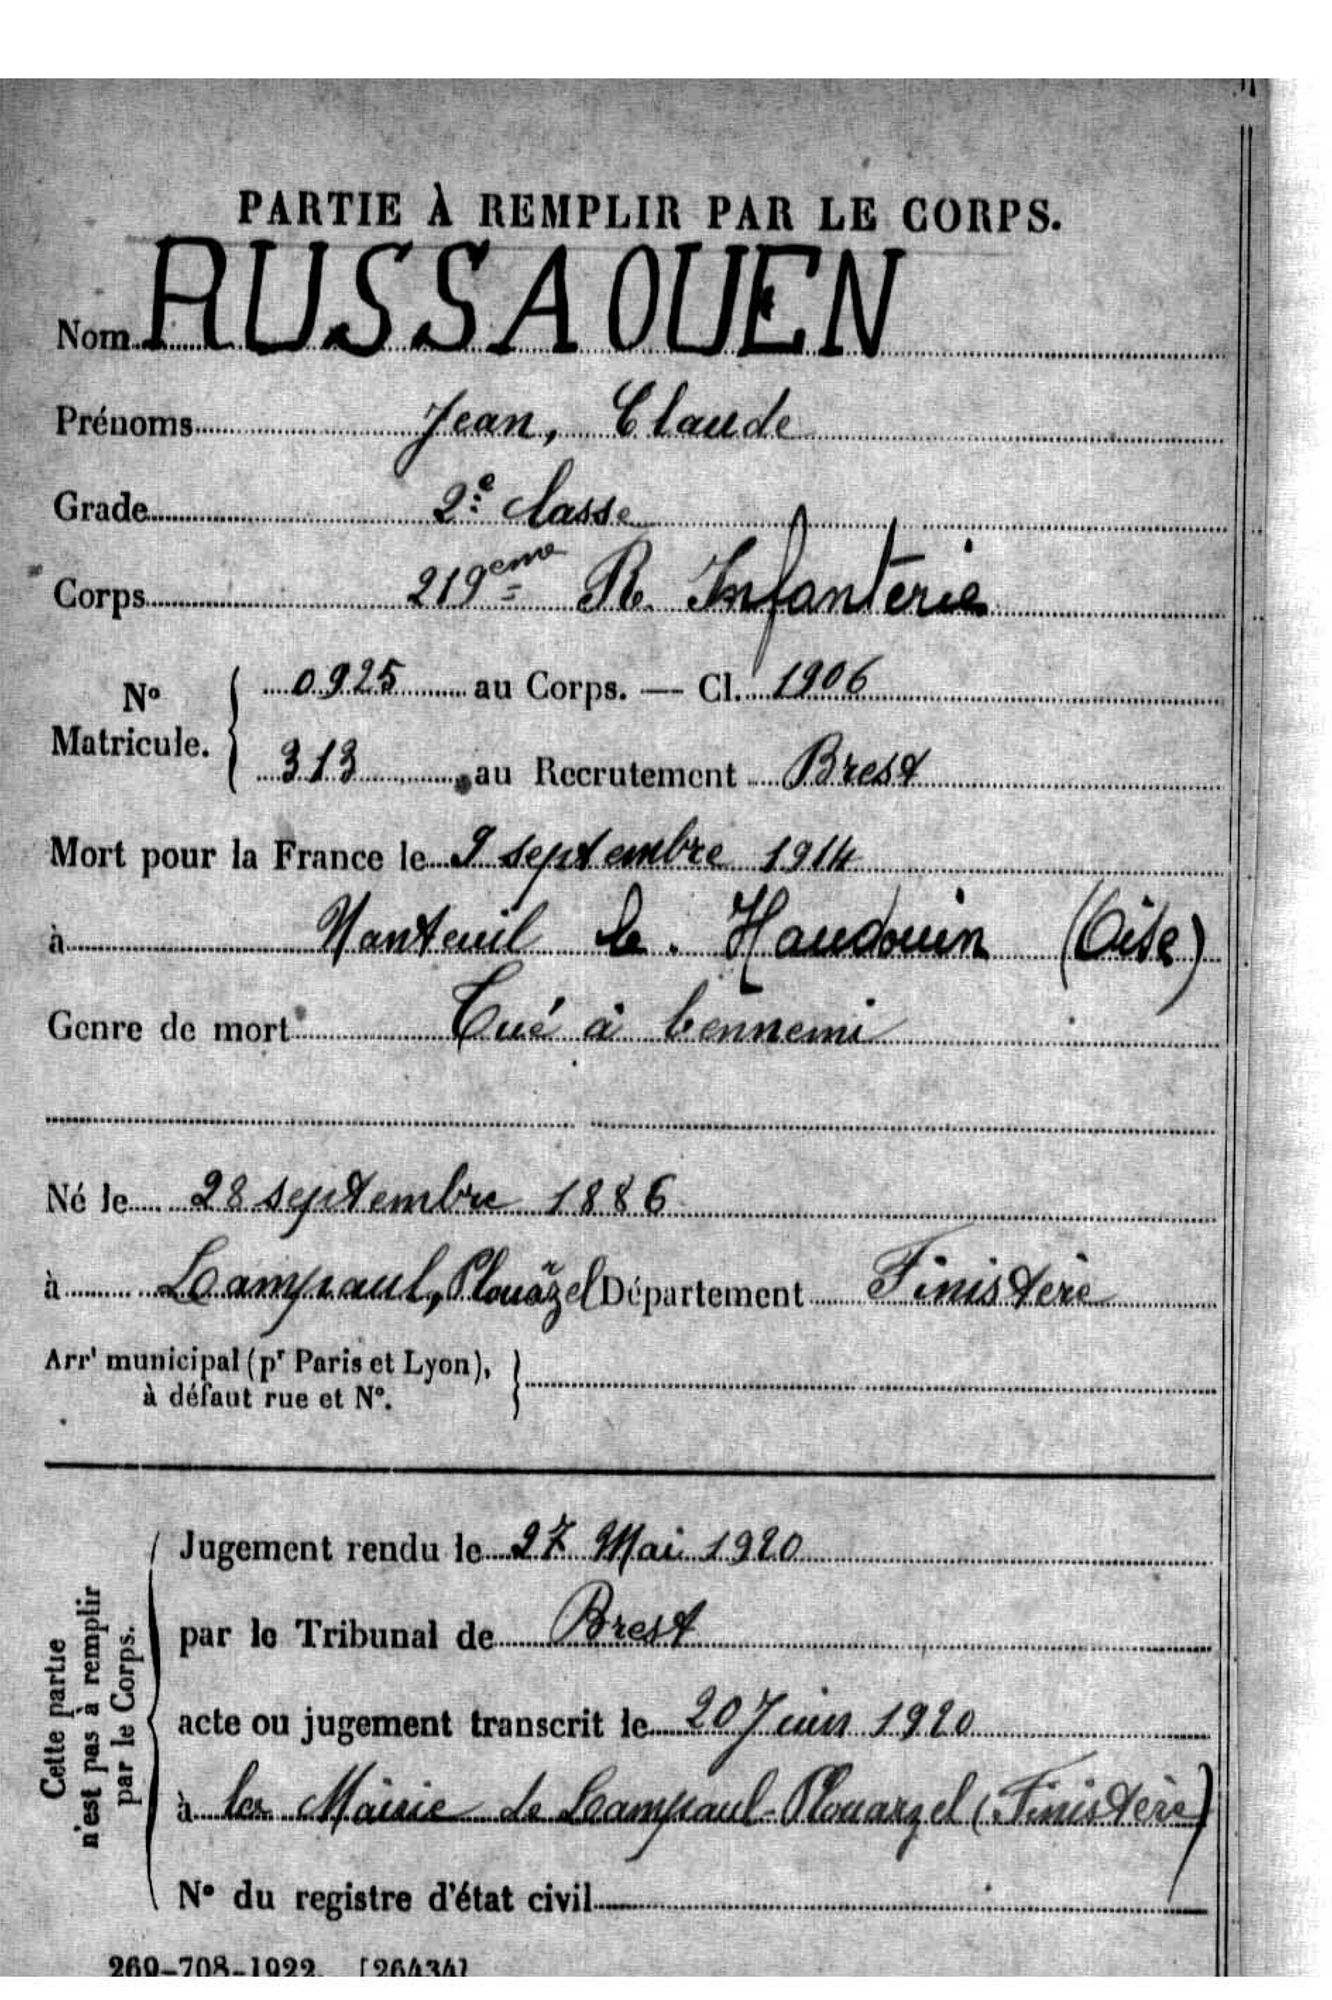 PARTIE À REMPLIR PAR LE CORPS.
Nom RUSSAOUEN
Prénoms Jean, Claude
Grade 2e classe
Corps 219eme R. Infanterie
No Matricule. { 0925 au Corps. — Cl. 1906
313 au Recrutement Brest
Mort pour la France le 9 septembre 1914
à Nanteuil le. Haudouin (Oise)
Genre de mort Tué à l'ennemi
Né le 28 septembre 1886
à Lampaul, Plouärzel Département Finistère
Arrt municipal (pr Paris et Lyon), }
à défaut rue et No.
Cette partie
n'est pas à remplir
par le Corps.
Jugement rendu le 27 Mai 1920
par le Tribunal de Brest
acte ou jugement transcrit le 20 Juin 1920
à la Mairie de Lampaul-Plouarzel (Finistère)
No du registre d'état civil
269-708-1922. [26434]